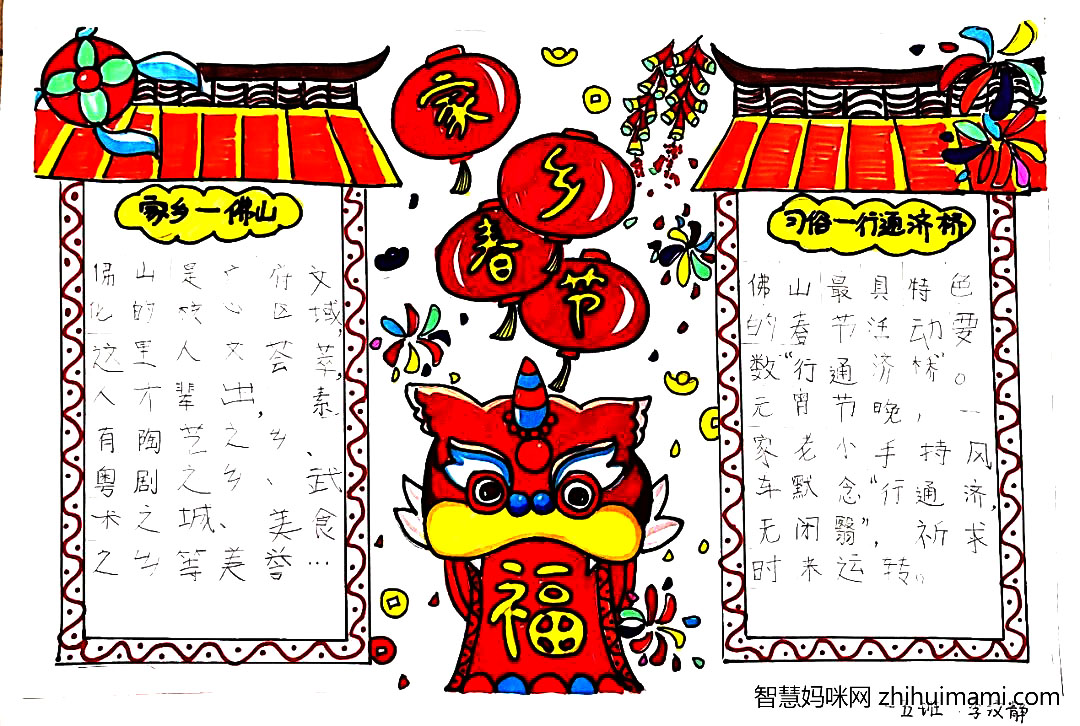 家
乡
春
节
家乡一佛山
佛山是广府文
化的核心区域,
这里人文荟萃,
人才辈出,素
有陶艺之乡、
粤剧之乡、武
术之城、美食
之乡等美誉…
习俗一行通济桥
佛山最具特色
的春节活动要
数“行通济桥”。
元宵节晚,一
家老小手持风
车默念“行通济,
无闭翳”,祈求
时来运转。
福
智慧妈咪网 zhihuimami.com
五班